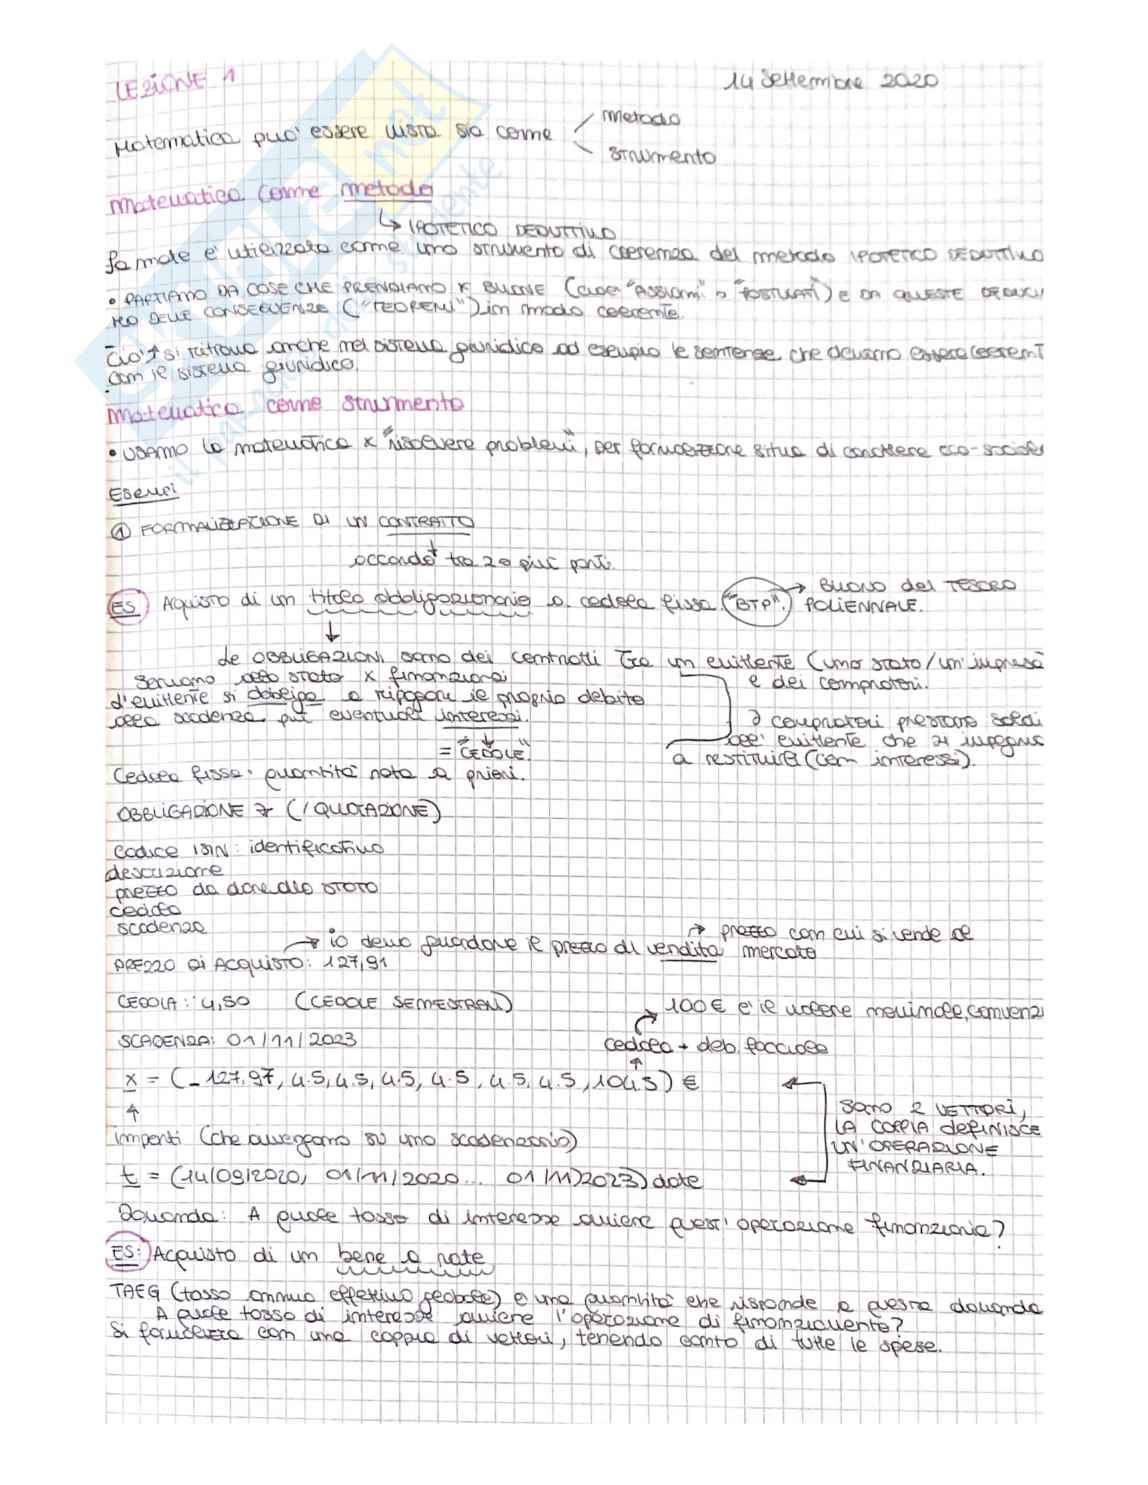 LEZIONE 1
14 Settembre 2020
Matematica può essere vista sia come
metodo
strumento
Matematica come metodo
↳ IPOTETICO DEDUTTIVO
la mate è utilizzata come uno strumento di coerenza del metodo IPOTETICO DEDUTTIVO
• PARTIAMO DA COSE CHE PRENDIAMO X BUONE ("ASSIOMI" o "POSTULATI") E DA QUESTE DEDUCI
MO DELLE CONSEGUENZE ("TEOREMI") in modo coerente.
Ciò si ritrova anche nel sistema giuridico ad esempio le sentenze che devono essere coerenti
con il sistema giuridico.
Matematica come strumento
• USIAMO la matematica x "risolvere problemi", per di carattere eco-sociale
Esempi
① FORMALIZZAZIONE DI UN CONTRATTO
accordo tra 2 o più parti.
ES Aquisto di un titolo obbligazionario a cedola fissa ("BTP".)
→ BUONO del TESORO
POLIENNALE.
Le OBBLIGAZIONI sono dei contratti tra un emittente (uno stato/un'impresa
e dei compratori.
Servono allo stato x finanziarsi
l'emittente si obbliga a ripagare il proprio debito
alla scadenza più eventuali interessi.
= "CEDOLE"
I compratori prestano soldi
all'emittente che si impegna
a restituirli (con interessi).
Cedola fissa: quantità nota a priori.
OBBLIGAZIONE (/QUOTAZIONE)
codice ISIN: identificativo
descrizione
prezzo da dare allo STATO
cedola
scadenza
→ io devo guardare il prezzo di vendita
→ prezzo con cui si vende al
mercato
PREZZO DI ACQUISTO: 127,91
CEDOLA: 4,50 (CEDOLE SEMESTRALI)
→ 100€ è il valore nominale, convenzi
SCADENZA: 01/11/2023
cedola + deb. facciale
x = (-127,97, 4.5, 4.5, 4.5, 4.5, 4.5, 4.5, 104.5) €
SONO 2 VETTORI,
LA COPPIA DEFINISCE
UN'OPERAZIONE
FINANZIARIA.
importi (che avvengono su uno scadenzario)
t = (14/09/2020, 01/11/2020... 01/11/2023) date
Domanda: A quale tasso di interesse avviene quest'operazione finanziaria?
ES: Acquisto di un bene a rate
TAEG (tasso annuo effettivo globale) è una quantità che risponde a questa domanda
A quale tasso di interesse avviene l'operazione di finanziamento?
Si formalizza con una coppia di vettori, tenendo conto di tutte le spese.